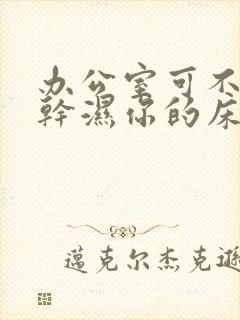 办公室可不
幹濕你的床
邁克尔杰克遜